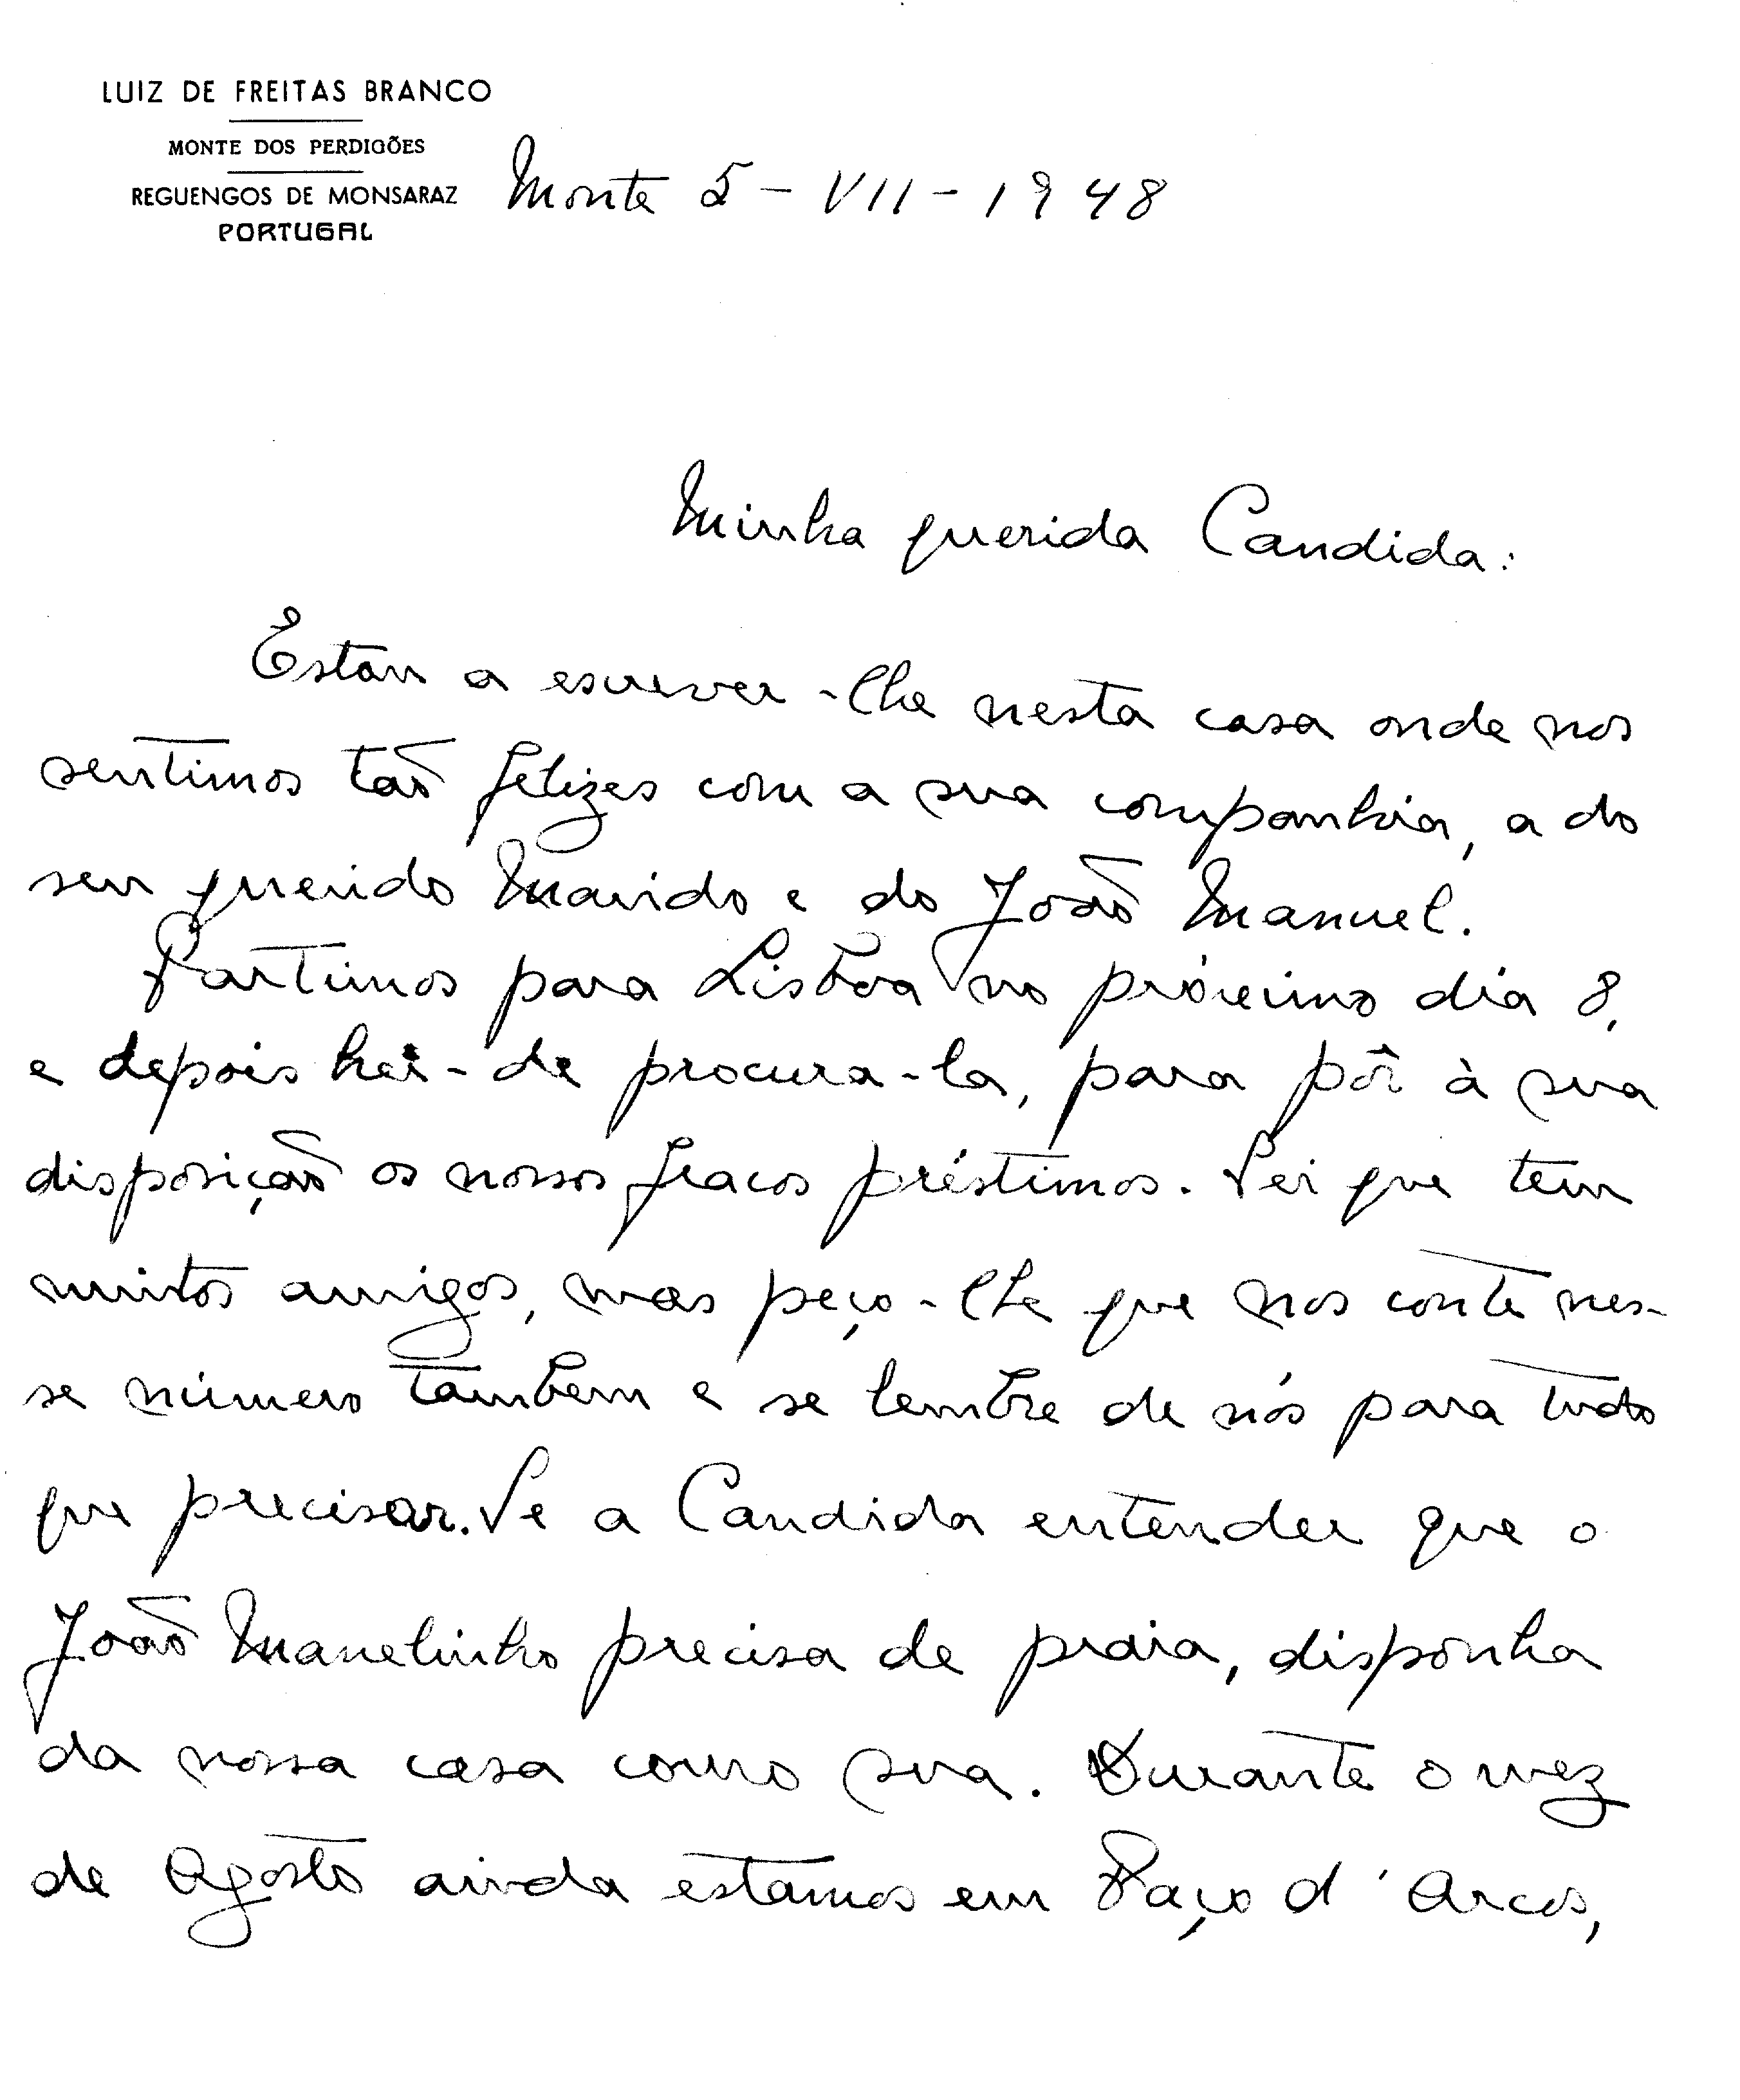 LUIZ DE FREITAS BRANCO
MONTE DOS PERDIGÕES
REGUENGOS DE MONSARAZ
PORTUGAL
Monte 5-VII-1948
Minha querida Candida:
Estou a escrever-lhe nesta casa onde nos
sentimos tão felizes com a sua companhia, a do
seu querido Marido e do João Manuel.
Partimos para Lisboa no próximo dia 8,
e depois hei-de procura-la, para pôr à sua
disposição os nossos fracos préstimos. Sei que tem
muitos amigos, mas peço-lhe que nos conte nes-
se número tambem e se lembre de nós para tudo
que precisar. Se a Candida entender que o
João Manelinho precisa de praia, disponha
da nossa casa como sua. Durante o mez
de Agosto ainda estamos em Paço d'Arcos,